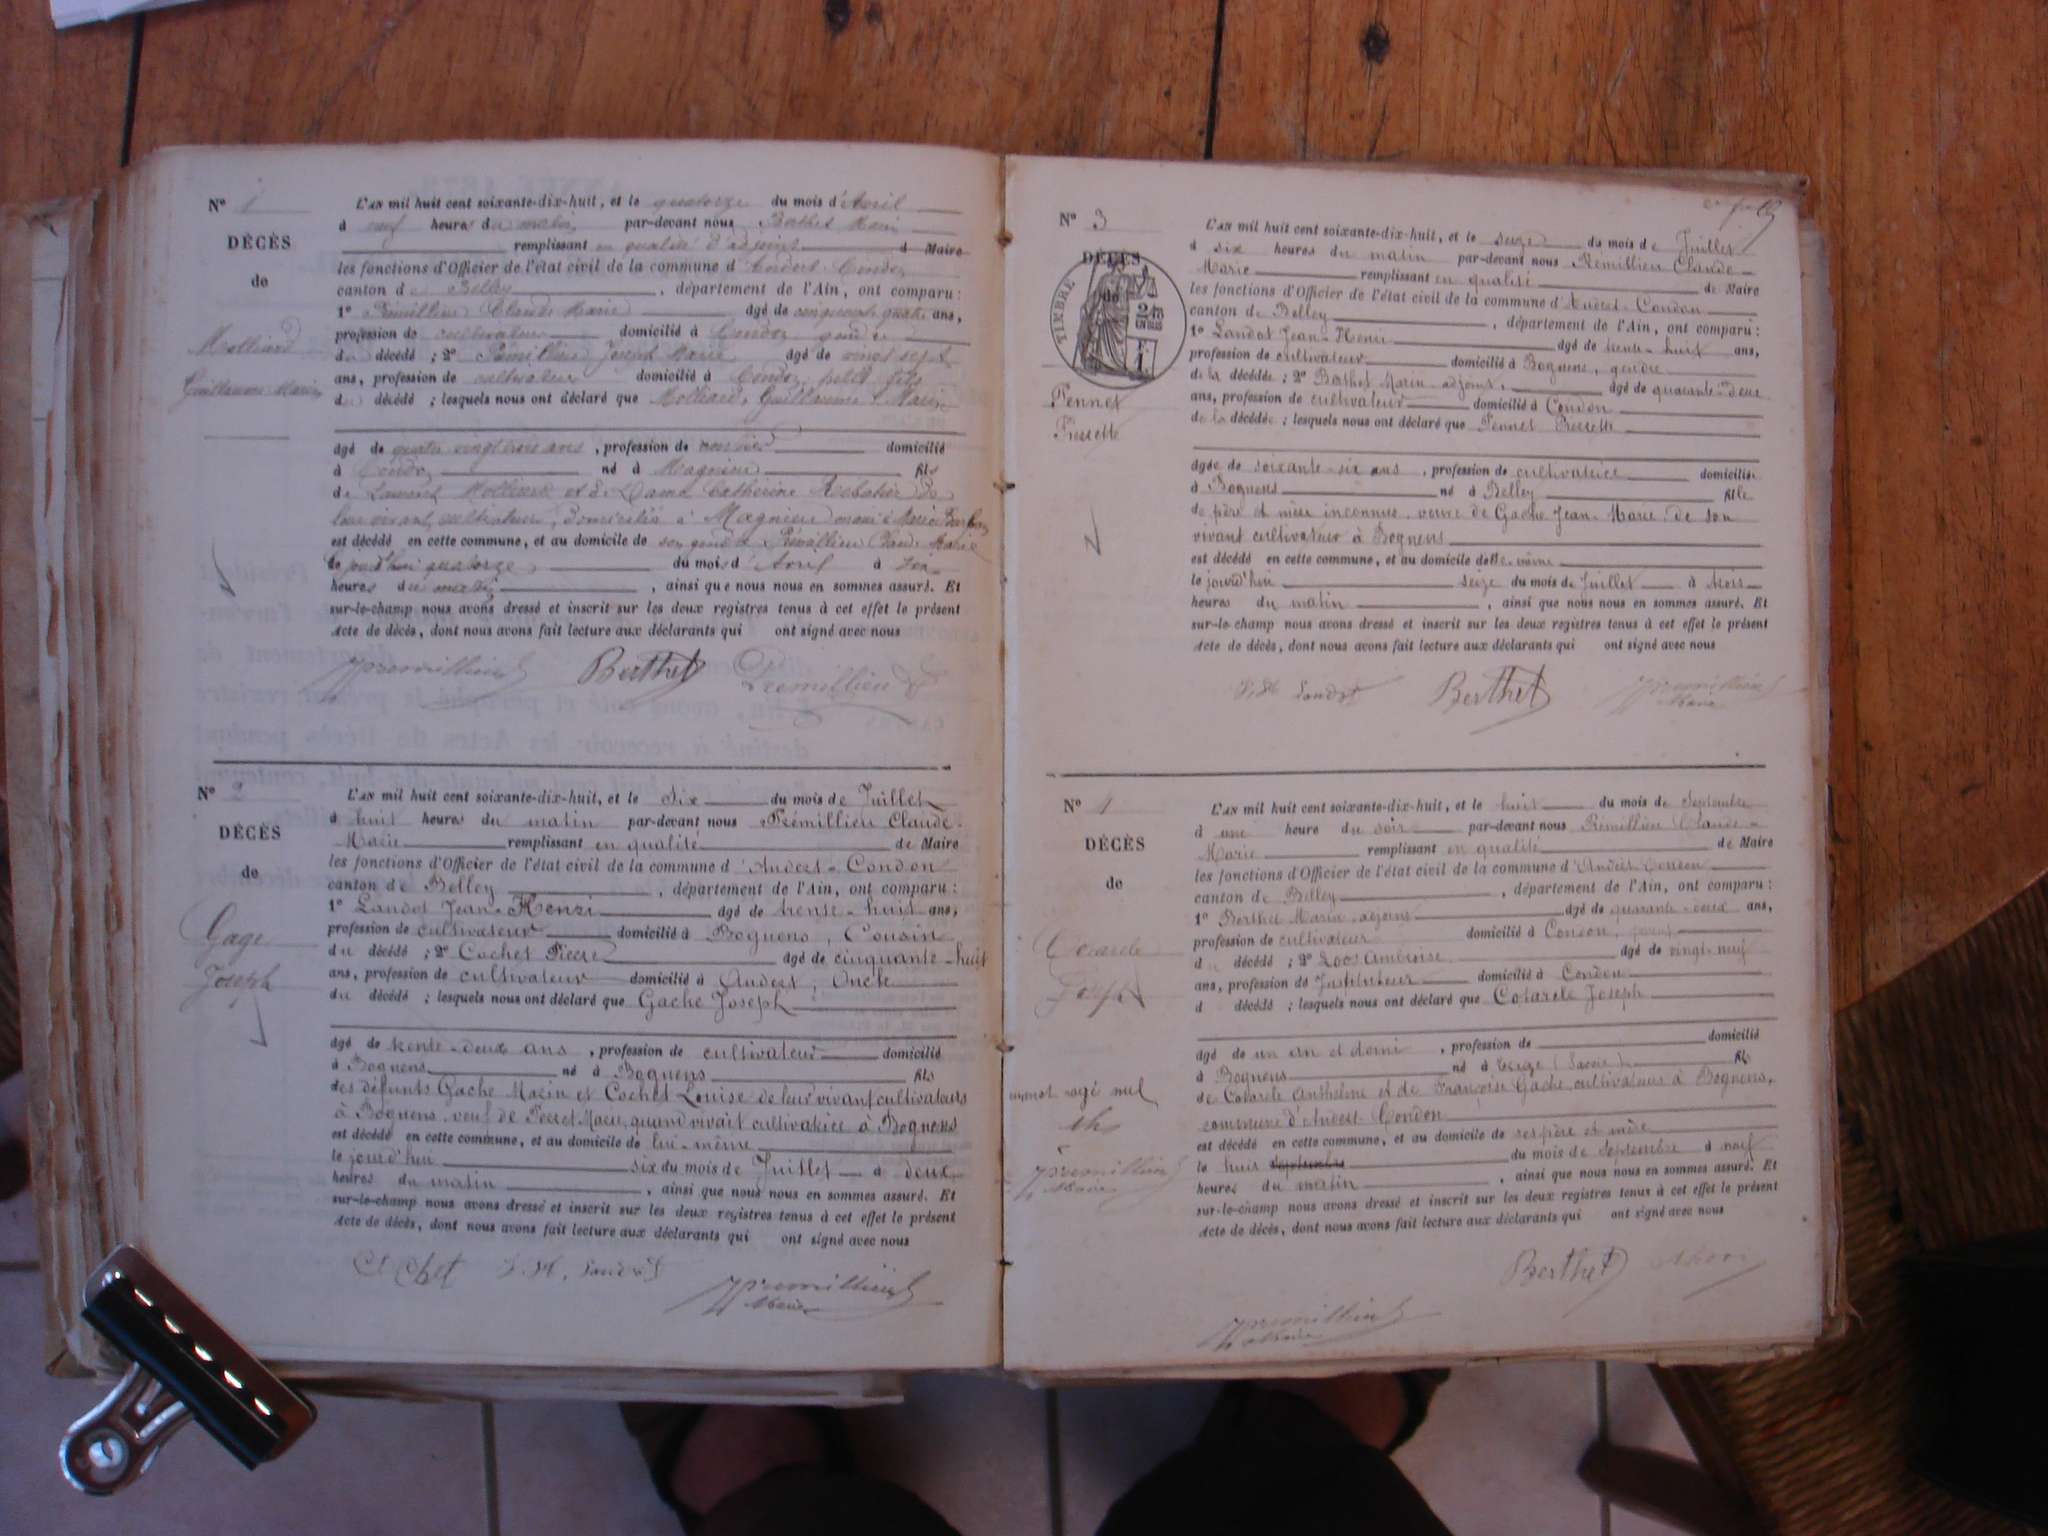 N° 1
DÉCÈS
de
Molliard
Guillaume Marin
L'AN mil huit cent soixante-dix-huit, et le quatorze du mois d'Avril
à neuf heures du matin, par-devant nous Berthet Marin
remplissant en qualité d'adjoint d Maire
les fonctions d'Officier de l'état civil de la commune d'Andert-Condon
canton de Belley, département de l'Ain, ont comparu :
1° Prémillieu Claude Marie âgé de cinquante quatre ans,
profession de cultivateur domicilié à Condon gendre
du décédé ; 2° Prémillieu Joseph Marie âgé de vingt sept
ans, profession de cultivateur domicilié à Condon petit fils
du décédé ; lesquels nous ont déclaré que Molliard, Guillaume, Marin
âgé de quatre vingt trois ans, profession de domicilié
à Condon né à Magnieu fils
de Laurent Molliard et de Dame Catherine de
leur vivant cultivateurs, domiciliés à Magnieu marié à Marie
est décédé en cette commune, et au domicile de son gendre Prémillieu Claude Marie
le jourd'hui quatorze du mois d'Avril à six
heures du matin, ainsi que nous nous en sommes assuré. Et
sur-le-champ nous avons dressé et inscrit sur les deux registres tenus à cet effet le présent
Acte de décès, dont nous avons fait lecture aux déclarants qui ont signé avec nous
Prémillieu Berthet Prémillieu
N° 2
DÉCÈS
de
Gage
Joseph
L'AN mil huit cent soixante-dix-huit, et le six du mois de Juillet
à huit heures du matin par-devant nous Prémillieu Claude
Marie remplissant en qualité de Maire
les fonctions d'Officier de l'état civil de la commune d'Andert-Condon
canton de Belley, département de l'Ain, ont comparu :
1° Landot Jean-Henri âgé de trente-huit ans,
profession de cultivateur domicilié à Bognens, Cousin
du décédé ; 2° Cochet Pierre âgé de cinquante-huit
ans, profession de cultivateur domicilié à Andert, Oncle
du décédé ; lesquels nous ont déclaré que Gache Joseph
âgé de trente-deux ans, profession de cultivateur domicilié
à Bognens né à Bognens fils
des défunts Gache Marin et Cochet Louise de leur vivant cultivateurs
à Bognens, veuf de Perret Marie, quand vivait cultivatrice à Bognens
est décédé en cette commune, et au domicile de lui-même
le jourd'hui six du mois de Juillet à deux
heures du matin, ainsi que nous nous en sommes assuré. Et
sur-le-champ nous avons dressé et inscrit sur les deux registres tenus à cet effet le présent
Acte de décès, dont nous avons fait lecture aux déclarants qui ont signé avec nous
Cochet J. H. Landot Prémillieu
Maire
N° 3
DÉCÈS
de
TIMBRE
Pennet
Pierrette
L'AN mil huit cent soixante-dix-huit, et le seize du mois de Juillet
à six heures du matin par-devant nous Prémillieu Claude
Marie remplissant en qualité de Maire
les fonctions d'Officier de l'état civil de la commune d'Andert-Condon
canton de Belley, département de l'Ain, ont comparu :
1° Landot Jean-Henri âgé de trente-huit ans,
profession de cultivateur domicilié à Bognens, gendre
de la décédée ; 2° Berthet Marin adjoint, âgé de quarante-deux
ans, profession de cultivateur domicilié à Condon
de la décédée ; lesquels nous ont déclaré que Pennet
âgée de soixante-six ans, profession de cultivatrice domiciliée
à Bognens né à Belley fille
de père et mère inconnus, veuve de Gache Jean-Marie, de son
vivant cultivateur à Bognens
est décédé en cette commune, et au domicile d'elle-même
le jourd'hui seize du mois de Juillet à trois
heures du matin, ainsi que nous nous en sommes assuré. Et
sur-le-champ nous avons dressé et inscrit sur les deux registres tenus à cet effet le présent
Acte de décès, dont nous avons fait lecture aux déclarants qui ont signé avec nous
J. H. Landot Berthet Prémillieu
Maire
N° 4
DÉCÈS
de
Cotarele
Joseph
un mot rayé nul
Prémillieu
Maire
L'AN mil huit cent soixante-dix-huit, et le huit du mois de Septembre
à une heure du soir par-devant nous Prémillieu Claude
Marie remplissant en qualité de Maire
les fonctions d'Officier de l'état civil de la commune d'Andert-Condon
canton de Belley, département de l'Ain, ont comparu :
1° Berthet Marin, adjoint âgé de quarante-deux ans,
profession de cultivateur domicilié à Condon,
d décédé ; 2° Ambroise âgé de vingt-neuf
ans, profession de Instituteur domicilié à Condon
d décédé ; lesquels nous ont déclaré que Cotarele Joseph
âgé de un an et demi, profession de domicilié
à Bognens né à (Savoie) fils
de Cotarele Anthelme et de Françoise Gache, cultivateurs à Bognens,
commune d'Andert-Condon
est décédé en cette commune, et au domicile de ses père et mère
le huit septembre du mois de Septembre à neuf
heures du matin, ainsi que nous nous en sommes assuré. Et
sur-le-champ nous avons dressé et inscrit sur les deux registres tenus à cet effet le présent
Acte de décès, dont nous avons fait lecture aux déclarants qui ont signé avec nous
Berthet
Prémillieu
Maire